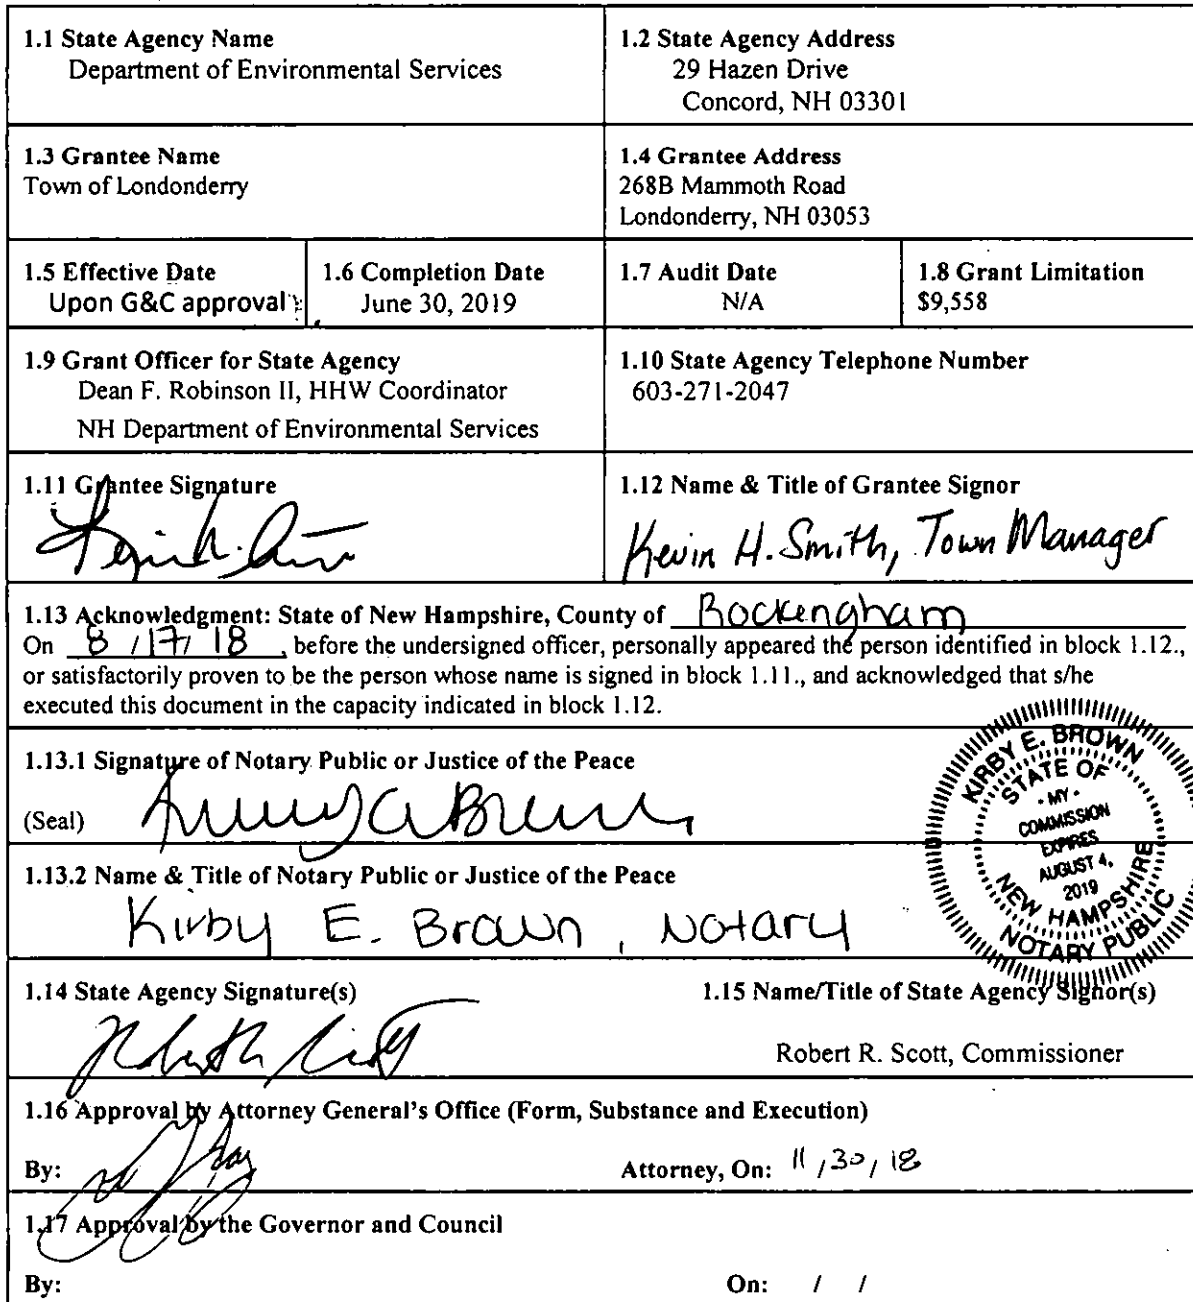 1.1 State Agency Name
Department of Environmental Services
1.2 State Agency Address
29 Hazen Drive
Concord, NH 03301
1.3 Grantee Name
Town of Londonderry
1.4 Grantee Address
268B Mammoth Road
Londonderry, NH 03053
1.5 Effective Date
Upon G&C approval
1.6 Completion Date
June 30, 2019
1.7 Audit Date
N/A
1.8 Grant Limitation
$9,558
1.9 Grant Officer for State Agency
Dean F. Robinson II, HHW Coordinator
NH Department of Environmental Services
1.10 State Agency Telephone Number
603-271-2047
1.11 Grantee Signature
1.12 Name & Title of Grantee Signor
Kevin H. Smith, Town Manager
1.13 Acknowledgment: State of New Hampshire, County of Rockengham
On 8 / 17 / 18, before the undersigned officer, personally appeared the person identified in block 1.12.,
or satisfactorily proven to be the person whose name is signed in block 1.11., and acknowledged that s/he
executed this document in the capacity indicated in block 1.12.
1.13.1 Signature of Notary Public or Justice of the Peace
(Seal)
KIRBY E. BROWN
STATE OF
- MY -
COMMISSION
EXPIRES
AUGUST 4,
2019
NEW HAMPSHIRE
NOTARY PUBLIC
1.13.2 Name & Title of Notary Public or Justice of the Peace
Kirby E. Brown, Notary
1.14 State Agency Signature(s)
1.15 Name/Title of State Agency Signor(s)
Robert R. Scott, Commissioner
1.16 Approval by Attorney General's Office (Form, Substance and Execution)
By:
Attorney, On: 11 / 30 / 18
1.17 Approval by the Governor and Council
By:
On: / /